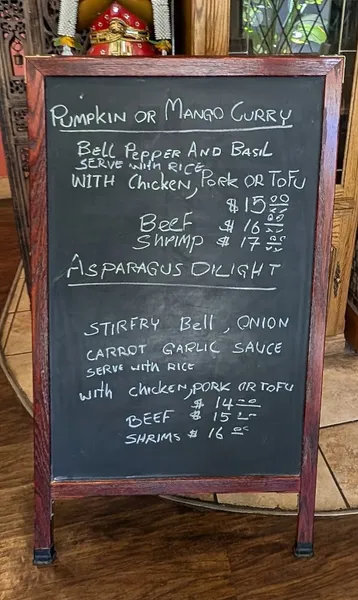 Pumpkin or Mango Curry
Bell Pepper And Basil
Serve with Rice
With Chicken, Pork or Tofu
$15.00
Beef $16.00
Shrimp $17.00
Asparagus Dilight
Stirfry Bell, Onion
Carrot Garlic Sauce
Serve with Rice
With chicken, pork or Tofu
$14.00
Beef $15.00
Shrims $16.00